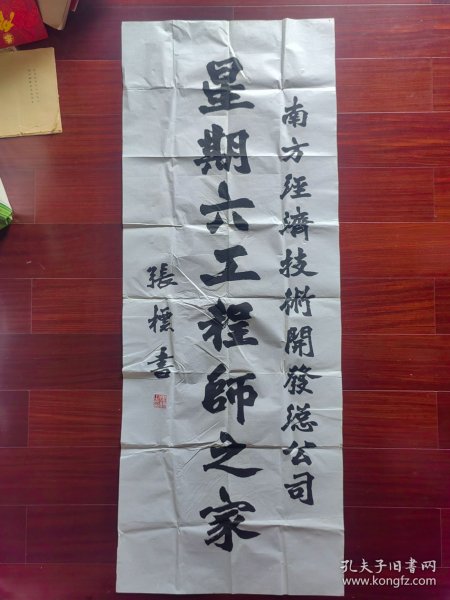 南方经濟技術開發总公司
星期六工程師之家
張標書
孔夫子旧书网
www.kongfz.com